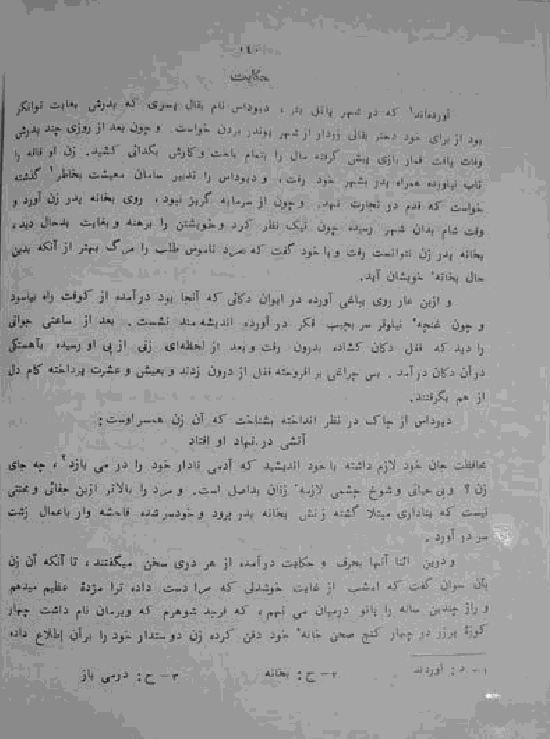 ۱٤۰
حکایت
آورده‌اند۱ که در شهر پاتلی پتر، دیوداس نام بقال پسری که پدرش بغایت توانگر
بود از برای خود دختر بقالی زردار از شهر پوندر بردن خواست. و چون بعد از روزی چند پدرش
وفات یافت قمار بازی پیش گرفته مال را بتمام باخت و کارش بگدائی کشید. زن او فاقه را
تاب نیاورده همراه پدر بشهر خود رفت، و دیوداس را تدبیر سامان معیشت بخاطر گذشته
خواست که قدم در تجارت نهد. و چون از سرمایه گریز نبود، روی بخانه پدر زن آورد و
وقت شام بدان شهر رسیده چون نیک نظر کرد و خویشتن را برهنه و بغایت بدحال دید،
بخانه پدر زن نتوانست رفت و با خود گفت که مرد ناموس طلب را مرگ بهتر از آنکه بدین
حال بخانهٔ خویشان آید.
و ازین عار روی بباغی آورده در ایوان دکانی که آنجا بود درآمده از کوفت راه بیاسود
و چون غنچهٔ نیلوفر سر بجیب فکر در آورده اندیشه‌مند نشست. بعد از ساعتی جوانی
را دید که قفل دکان کشاده بدرون رفت و بعد از لحظه‌ای زنی از پی او رسیده بآهستگی
در آن دکان درآمد. پس چراغی بر افروخته قفل از درون زدند و بعیش و عشرت پرداخته کام دل
از هم بگرفتند.
دیوداس از چاک در نظر انداخته بشناخت که آن زن همسر اوست:
آتشی در نهاد او افتاد
محافظت جان خود لازم داشته با خود اندیشید که آدمی نادار خود را در می بازد۳، چه جای
زن؟ و بی حیائی و شوخ چشمی لازمهٔ زنان بداصل است. و مرد را بالاتر ازین جفائی و محنتی
نیست که بناداری مبتلا گشته زنش بخانه پدر برود و خودسر شده فاحشه وار باعمال زشت
سر در آورد.
و درین اثنا آنها بحرف و حکایت درآمده از هر دری سخن میگفتند، تا آنکه آن زن
بآن جوان گفت که امشب از غایت خوشدلی که مرا دست داده ترا مژدهٔ عظیم میدهم
و راز چندین ساله را باتو درمیان می نهم، که فرجد شوهرم که ویرمان نام داشت چهار
کوزهٔ پرزر در چهار کنج صحن خانهٔ خود دفن کرده زن دوستدار خود را بر آن اطلاع داده
۱- د: آوردند
۲- ح: بخانه
۳- ح: درمی باز